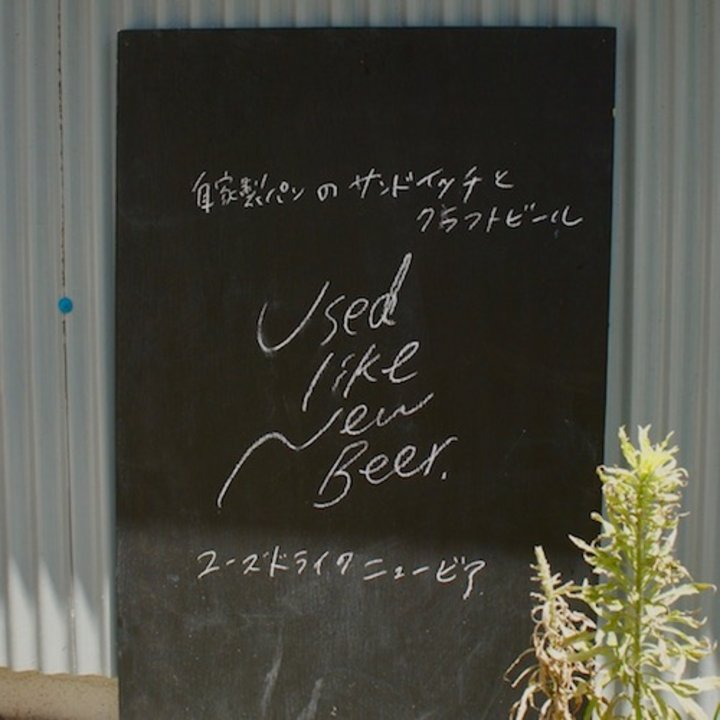 自家製パンのサンドイッチと
クラフトビール
Used
like
New
Beer.
ユーズドライクニュービア